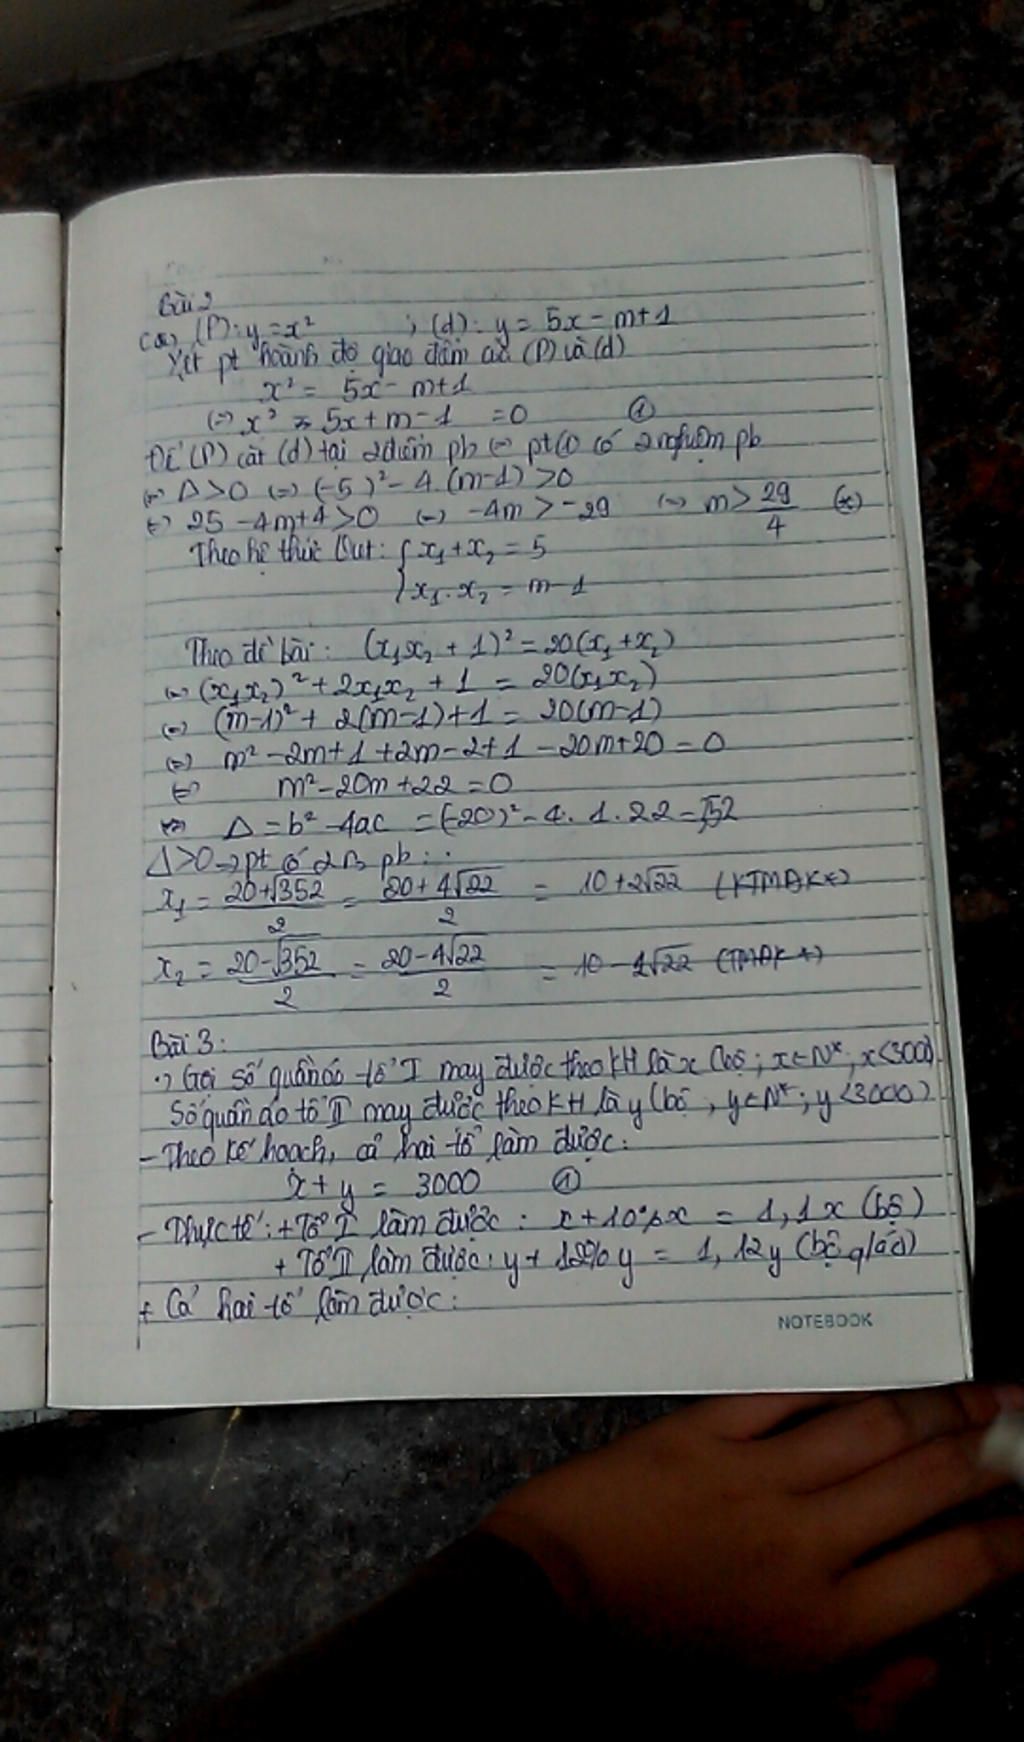 Bài 2
(P): y = x² ; (d): y = 5x - m+1
Xét pt hoành độ giao điểm của (P) và (d)
x² = 5x - m+1
(=) x² - 5x + m - 1 = 0 ①
Để (P) cắt (d) tại 2 điểm pb (=) pt ① có 2 nghiệm pb
(=) Δ > 0 (=) (-5)² - 4.(m-1) > 0
(=) 25 - 4m + 4 > 0 (=) -4m > -29 (=) m > 29/4 (*)
Theo hệ thức Viet: { x₁ + x₂ = 5
x₁ . x₂ = m - 1
Theo đề bài: (x₁x₂ + 1)² = 20(x₁ + x₂)
(=) (x₁x₂)² + 2x₁x₂ + 1 = 20(x₁x₂)
(=) (m-1)² + 2(m-1) + 1 = 20(m-1)
(=) m² - 2m + 1 + 2m - 2 + 1 - 20m + 20 = 0
(=) m² - 20m + 22 = 0
(=) Δ = b² - 4ac = (-20)² - 4. 1. 22 = 352
Δ > 0 → pt có 2 n pb:
x₁ = (20+√352)/2 = (20+4√22)/2 = 10 + 2√22 (KTMĐK*)
x₂ = (20-√352)/2 = (20-4√22)/2 = 10 - 2√22 (TMĐK *)
Bài 3:
·) Gọi số quần áo tổ I may được theo KH là x (bộ; x∈N*; x<3000)
Số quần áo tổ II may được theo KH là y (bộ, y∈N*; y<3000)
- Theo kế hoạch, cả hai tổ làm được:
x + y = 3000 ①
- Thực tế: + Tổ I làm được: x + 10% x = 1,1x (bộ)
+ Tổ II làm được: y + 12% y = 1,12y (bộ q/áo)
+ Cả hai tổ làm được:
NOTEBOOK